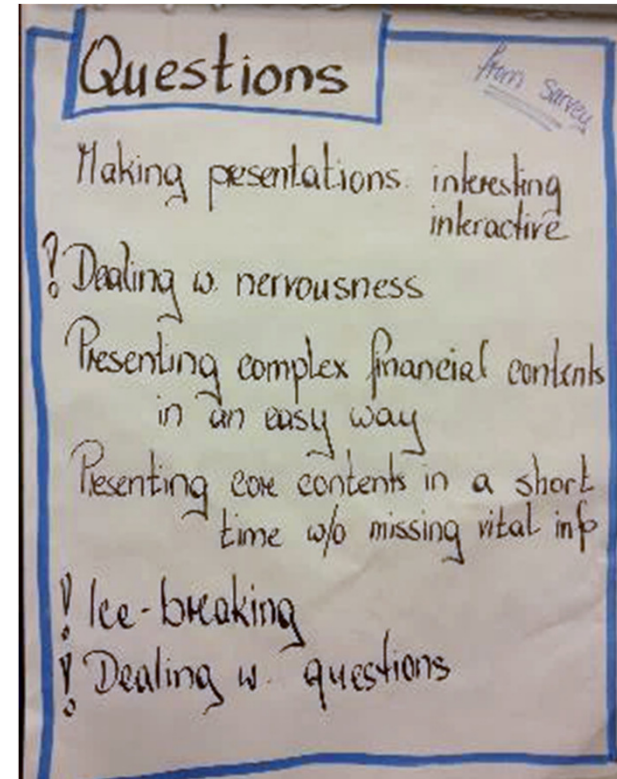 Questions
from survey
Making presentations interesting
interactive
! Dealing w. nervousness
Presenting complex financial contents
in an easy way
Presenting core contents in a short
time w/o missing vital info
! Ice-breaking
! Dealing w. questions